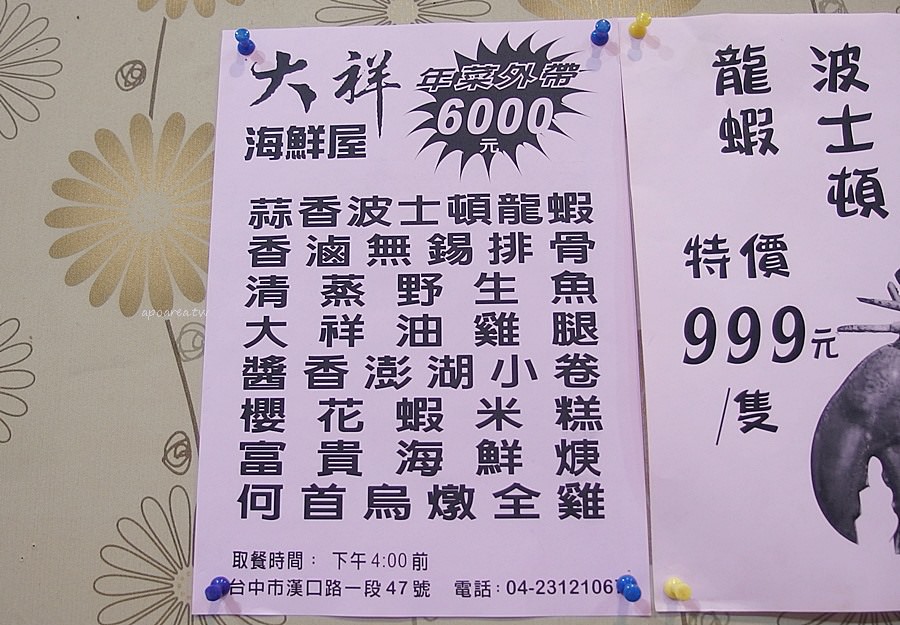 大祥
海鮮屋
年菜外帶
6000
元
蒜香波士頓龍蝦
香滷無錫排骨
清蒸野生魚
大祥油雞腿
醬香澎湖小卷
櫻花蝦米糕
富貴海鮮焿
何首烏燉全雞
取餐時間： 下午4:00前
台中市漢口路一段47號 電話：04-2312106
波士頓
龍蝦
特價
999元
/隻
apoarea.tw